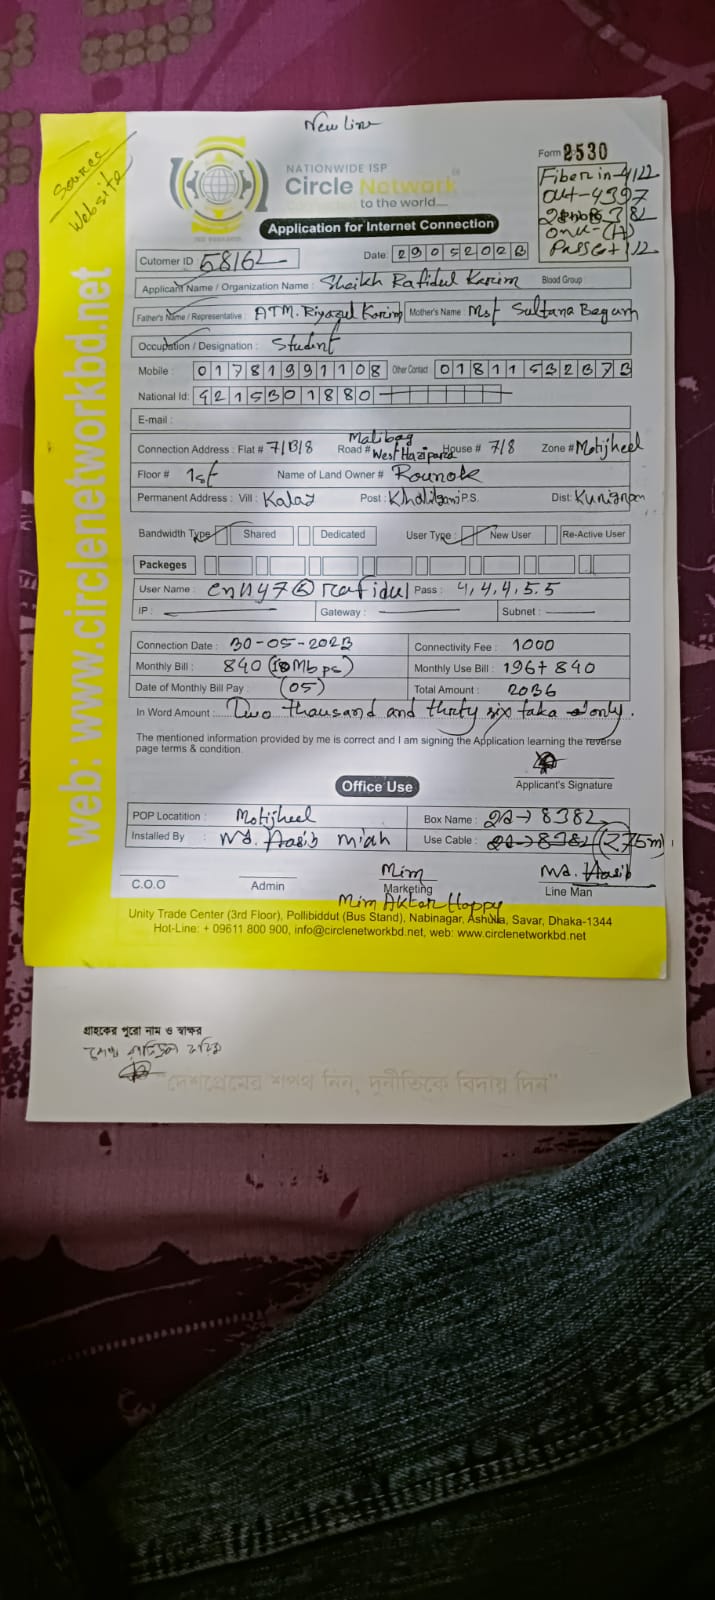 New Line
Source
Website
NATIONWIDE ISP
Circle Network
to the world....
Form 2530
Fiber in-4122
out-4397
onu-(A)
Application for Internet Connection
Cutomer ID 58162
Date: 29052023
Applicant Name / Organization Name : Sheikh Rafidul Karim Blood Group
Father's Name / Representative : ATM. Riyazul Karim Mother's Name : Mst Sultana Begum
Occupation / Designation : Student
Mobile : 01781991108 Other Contact 01811532873
National Id: 4215301880
E-mail :
Connection Address : Flat # 7/B/8 Road # Malibag West Hazipara House # 7/8 Zone # Motijheel
Floor # 1st Name of Land Owner # Rounok
Permanent Address : Vill : Post : P.S. Dist:
Bandwidth Type Shared Dedicated User Type : New User Re-Active User
Packeges
User Name : Pass : 4,4,4,5,5
IP : Gateway : Subnet :
Connection Date : 30-05-2023 Connectivity Fee : 1000
Monthly Bill : 840 (10Mbps) Monthly Use Bill : 196+840
Date of Monthly Bill Pay : (05) Total Amount : 2036
In Word Amount : Two thousand and thirty six taka only.
The mentioned information provided by me is correct and I am signing the Application learning the reverse
page terms & condition.
Applicant's Signature
Office Use
POP Locatition : Motijheel Box Name : 8382
Installed By : Md. Hasib Miah Use Cable : (275m)
C.O.O Admin Mim Marketing Md. Hasib Line Man
Mim Aktar Happy
Unity Trade Center (3rd Floor), Pollibiddut (Bus Stand), Nabinagar, Ashulia, Savar, Dhaka-1344
Hot-Line: + 09611 800 900, info@circlenetworkbd.net, web: www.circlenetworkbd.net
web: www.circlenetworkbd.net
গ্রাহকের পুরো নাম ও স্বাক্ষর
"দেশপ্রেমের শপথ নিন, দুর্নীতিকে বিদায় দিন"